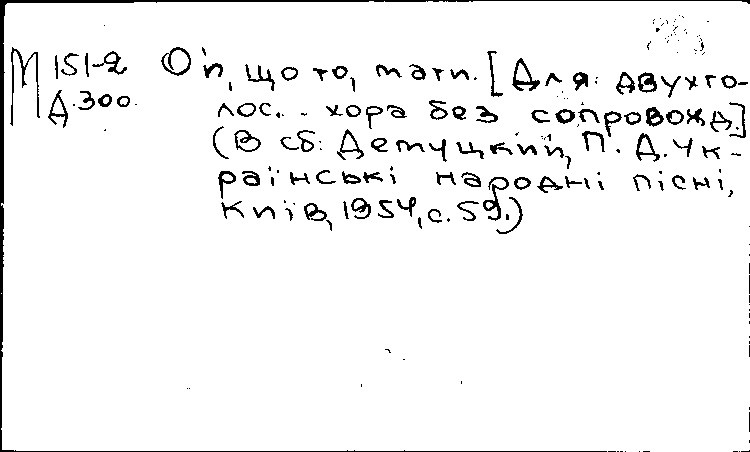 М 151-2 Ой, що то, мати. [Для двухго-
Д.300. лос. хора без сопровожд.]
(В сб: Демуцкий, П. Д. Ук-
раїнські народні пісні,
Київ, 1954, с. 59.)